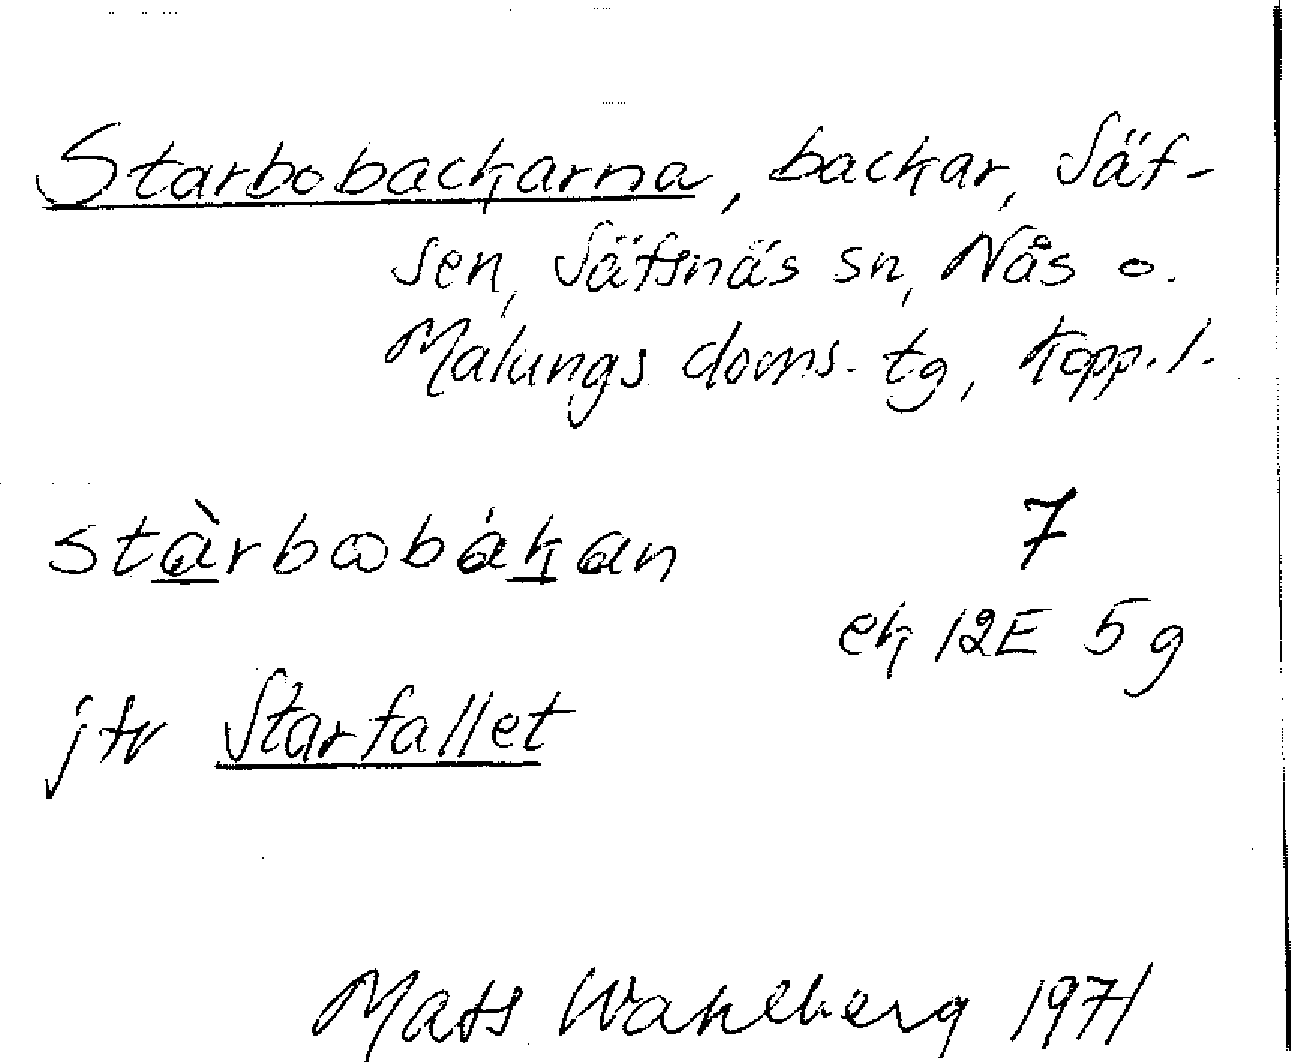 Starbobackarna, backar, Säf-
sen, Säfsnäs sn, Nås o.
Malungs doms. tg, Kopp. l.
stàrbωbákan 7
ek 12E 5g
jfr Starfallet
Mats Wahlberg 1971